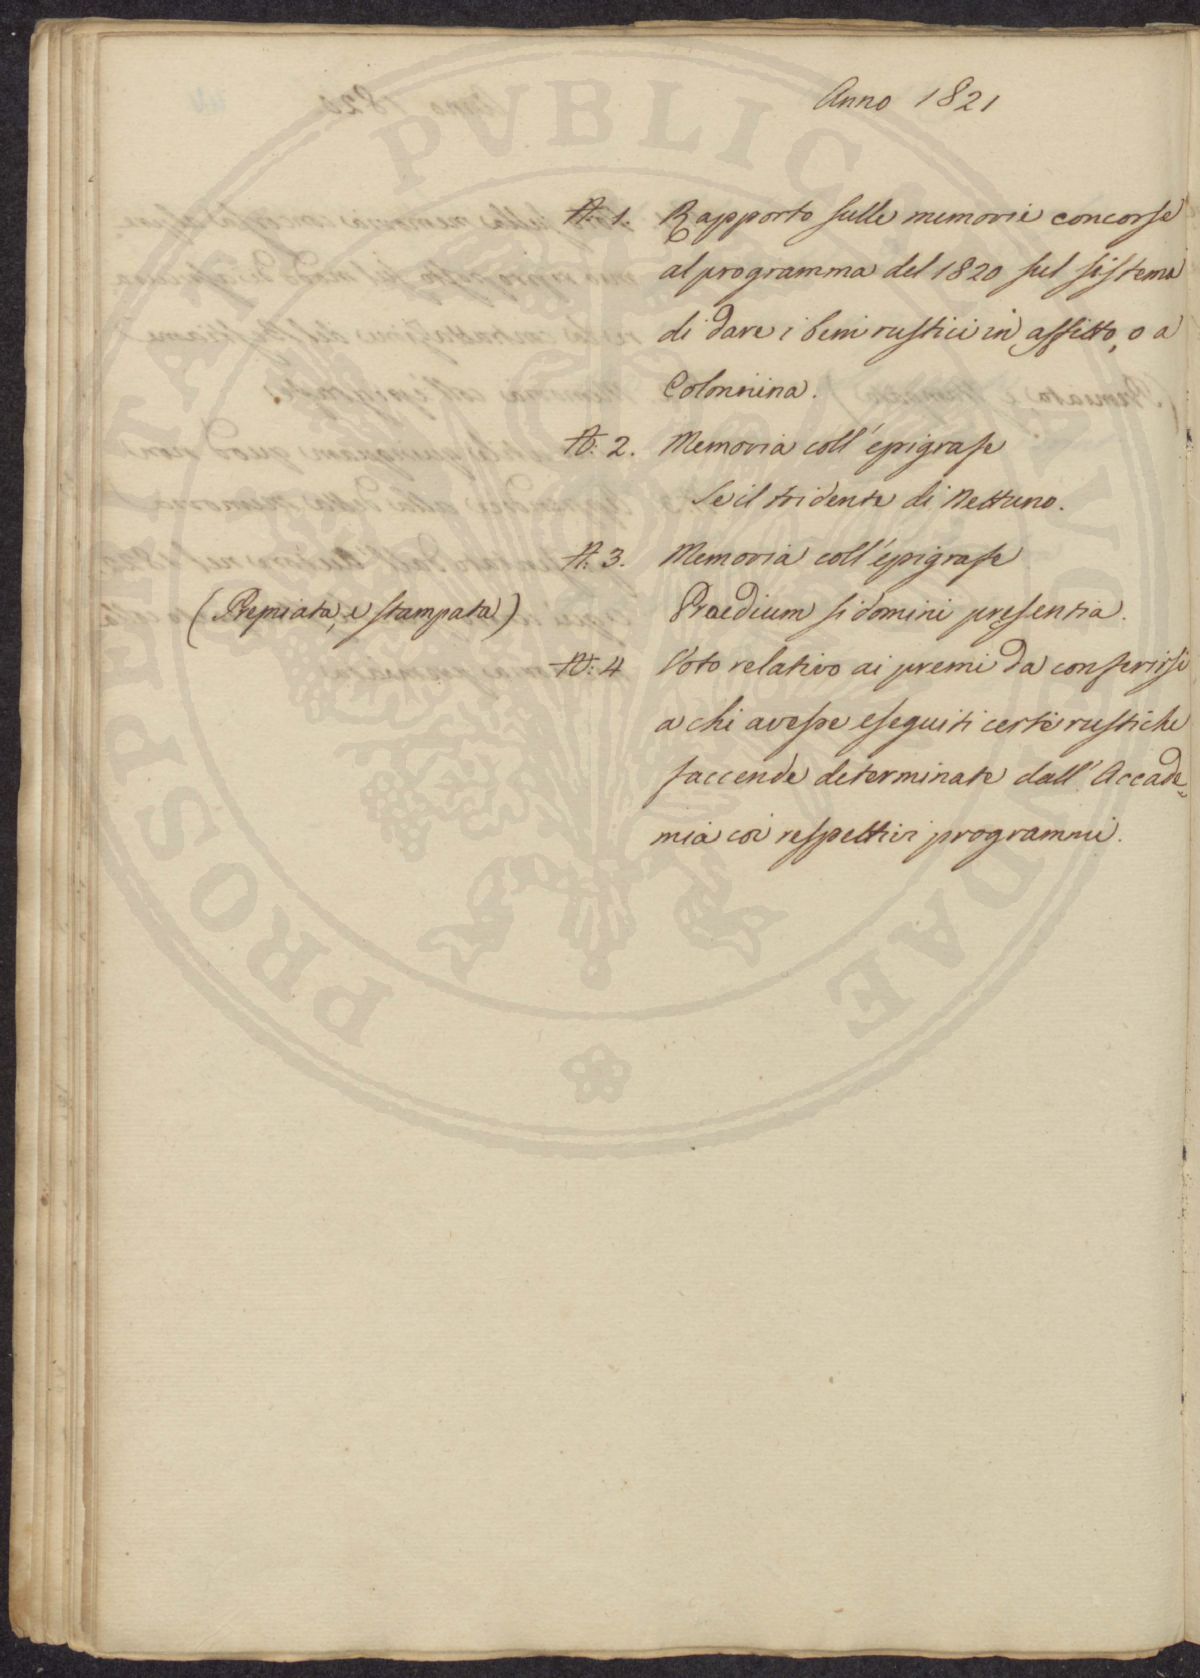 Anno 1821
N. 1. Rapporto sulle memorie concorse
al programma del 1820 sul sistema
di dare i beni rustici in affitto, o a
Colonnina.
N. 2. Memoria coll'epigrafe
Se il tridente di Nettuno.
N. 3. Memoria coll'epigrafe
(Premiata, e stampata) Praedium si domini presentia.
N. 4 Voto relativo ai premi da conferirsi
a chi avesse eseguiti certe rustiche
faccende determinate dall'Accade=
mia coi respettivi programmi.
PROSPERITATI PUBLICAE AUGENDAE